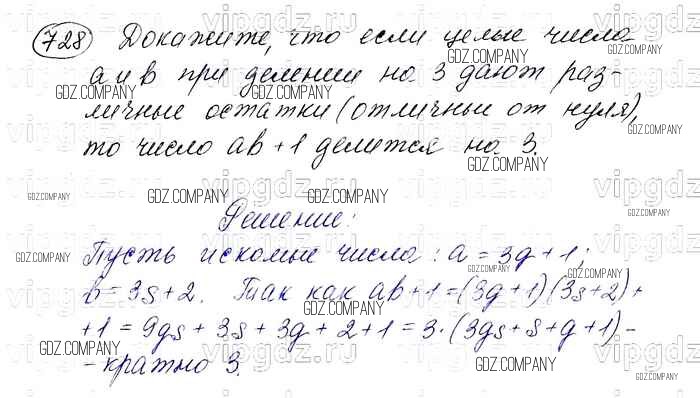 728 Докажите, что если целые числа
а и в при делении на 3 дают раз-
личные остатки (отличные от нуля),
то число ав+1 делится на 3.
Решение:
Пусть искомые числа: а = 3g+1;
в = 3s+2. Так как ав+1=(3g+1)(3s+2)+
+1 = 9gs + 3s + 3g + 2 + 1 = 3·(3gs+s+g+1)-
- кратно 3.